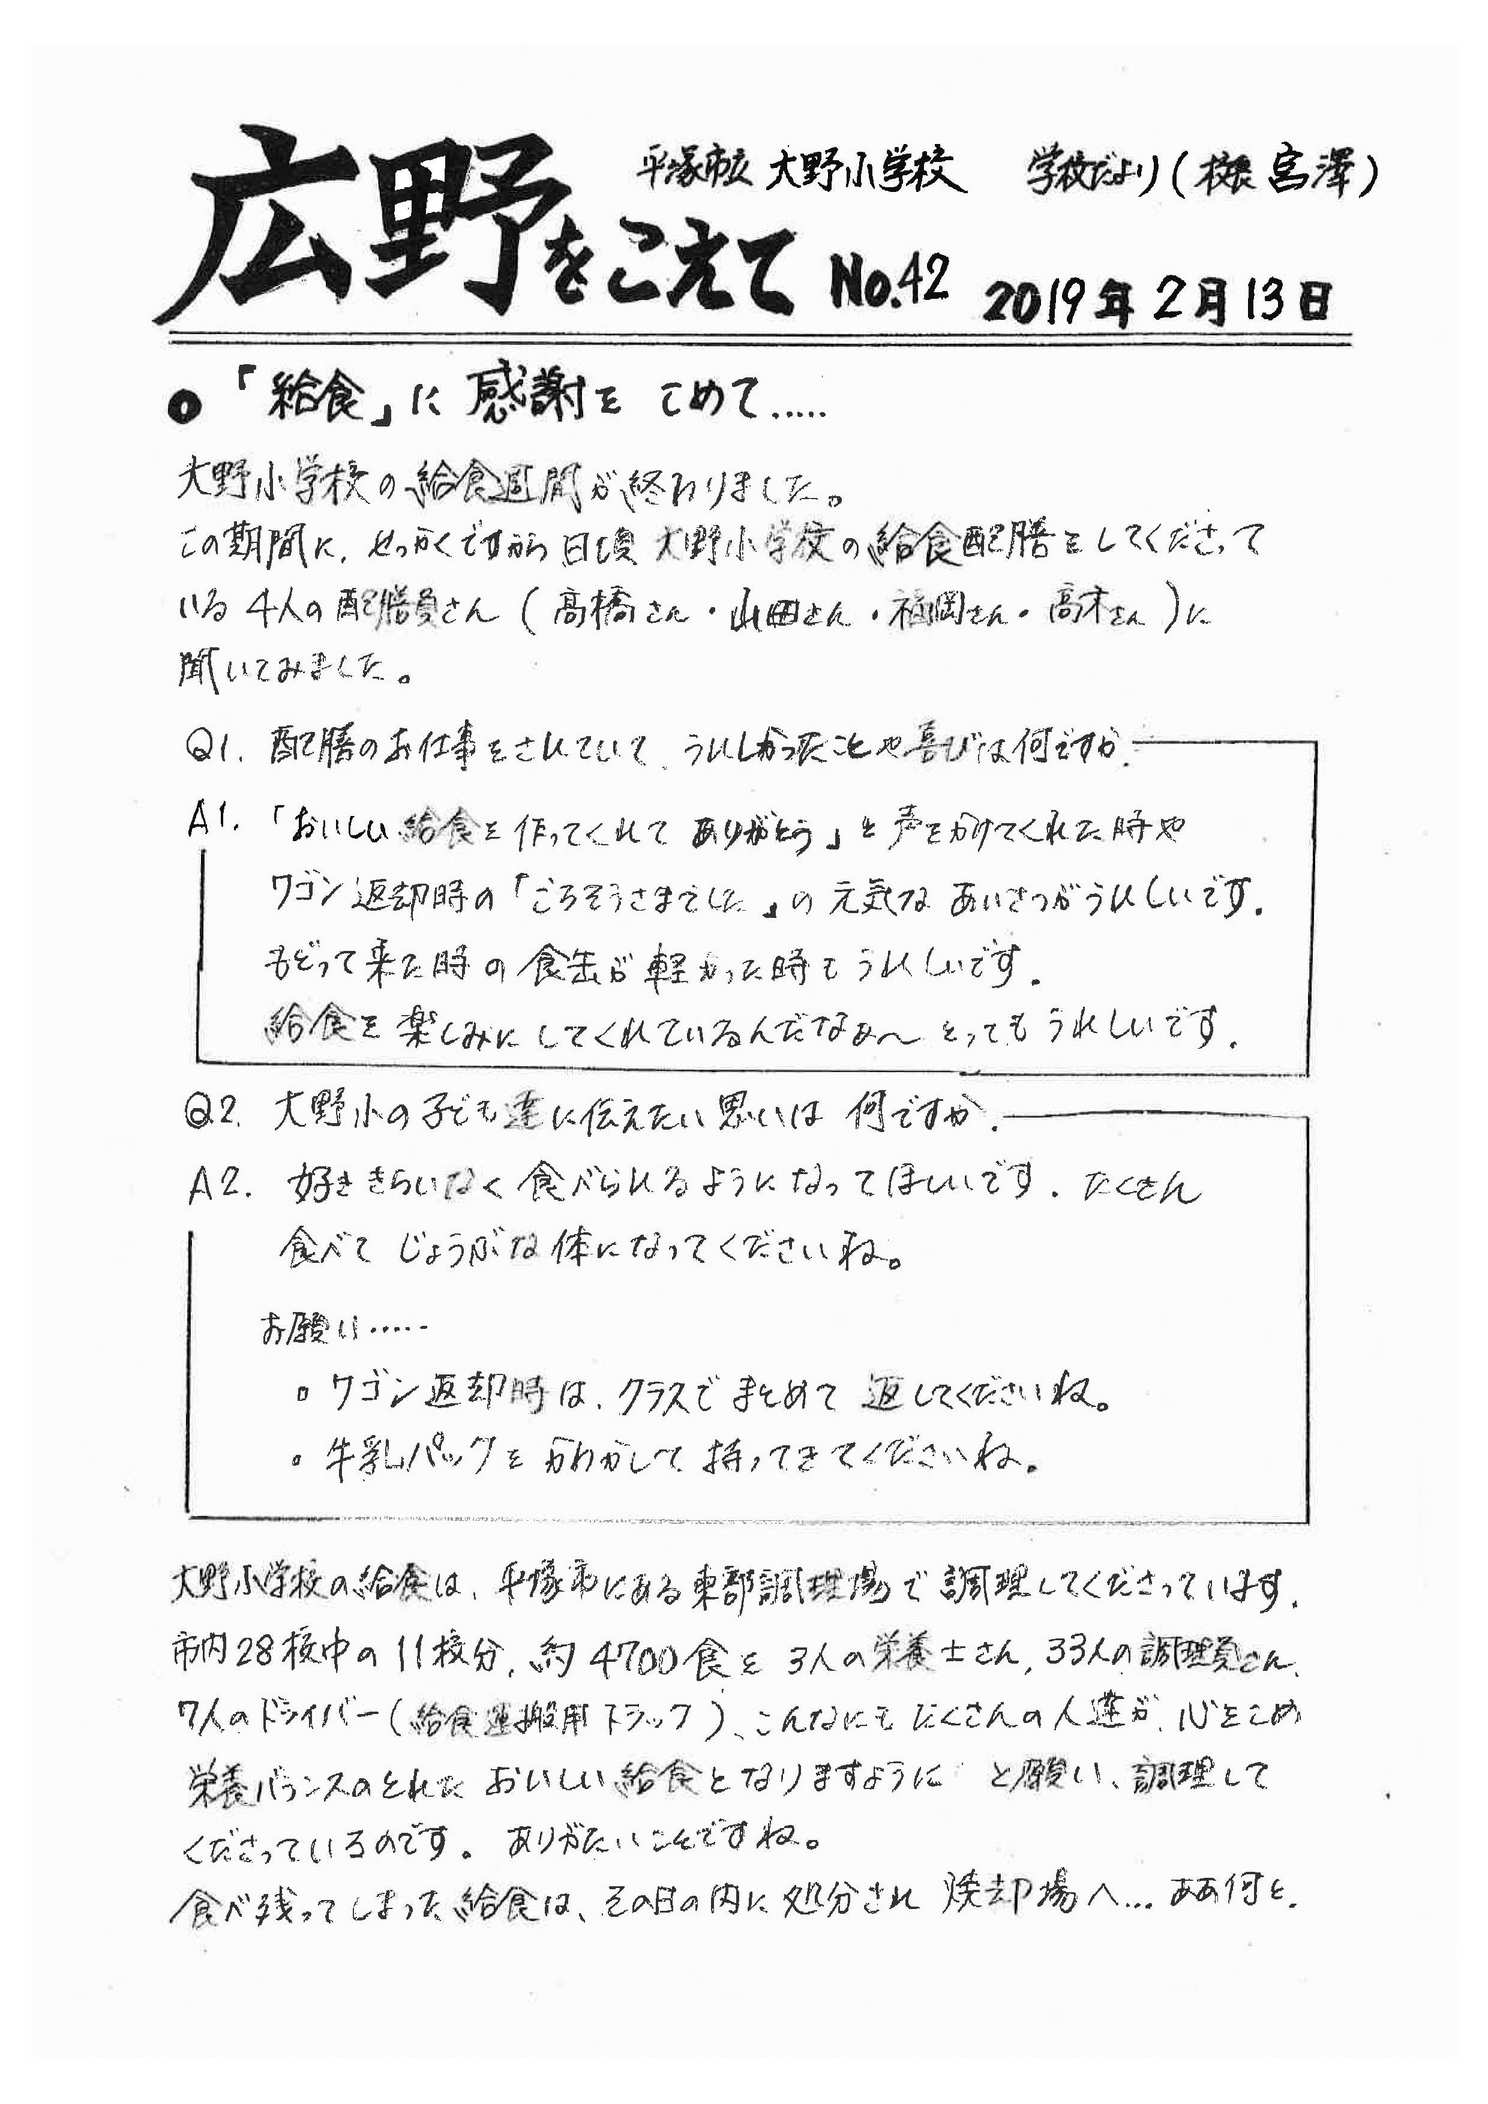 平塚市立 大野小学校 学校だより(校長 宮澤)
広野をこえて No.42 2019年2月13日
●「給食」に 感謝を こめて.....
大野小学校の給食週間が終わりました。
この期間に、せっかくですから日頃 大野小学校の給食配膳をしてくださって
いる 4人の配膳員さん(高橋さん・山田さん・福岡さん・高木さん)に
聞いてみました。
Q1. 配膳のお仕事をされていて、うれしかったことや喜びは何ですか.
A1. 「おいしい給食を作ってくれて ありがとう」と声をかけてくれた時や
ワゴン返却時の「ごちそうさまでした」の 元気な あいさつがうれしいです.
もどって来た時の食缶が軽かった時もうれしいです.
給食を楽しみにしてくれているんだなぁ〜 とってもうれしいです.
Q2. 大野小の子ども達に伝えたい思いは 何ですか.
A2. 好ききらいなく食べられるようになってほしいです. たくさん
食べて じょうぶな体になってくださいね。
お願い.....
○ワゴン返却時は、クラスで まとめて 返してくださいね。
○牛乳パックをかわかして持ってきてくださいね。
大野小学校の給食は、平塚市にある東部調理場で調理してくださっています.
市内28校中の11校分、約4700食を 3人の栄養士さん、33人の調理員さん、
7人のドライバー(給食運搬用トラック)、こんなにもたくさんの人達が、心をこめ
栄養バランスのとれた おいしい給食となりますように と願い、調理して
くださっているのです。ありがたいことですね。
食べ残ってしまった給食は、その日の内に処分され 焼却場へ... ああ何と.